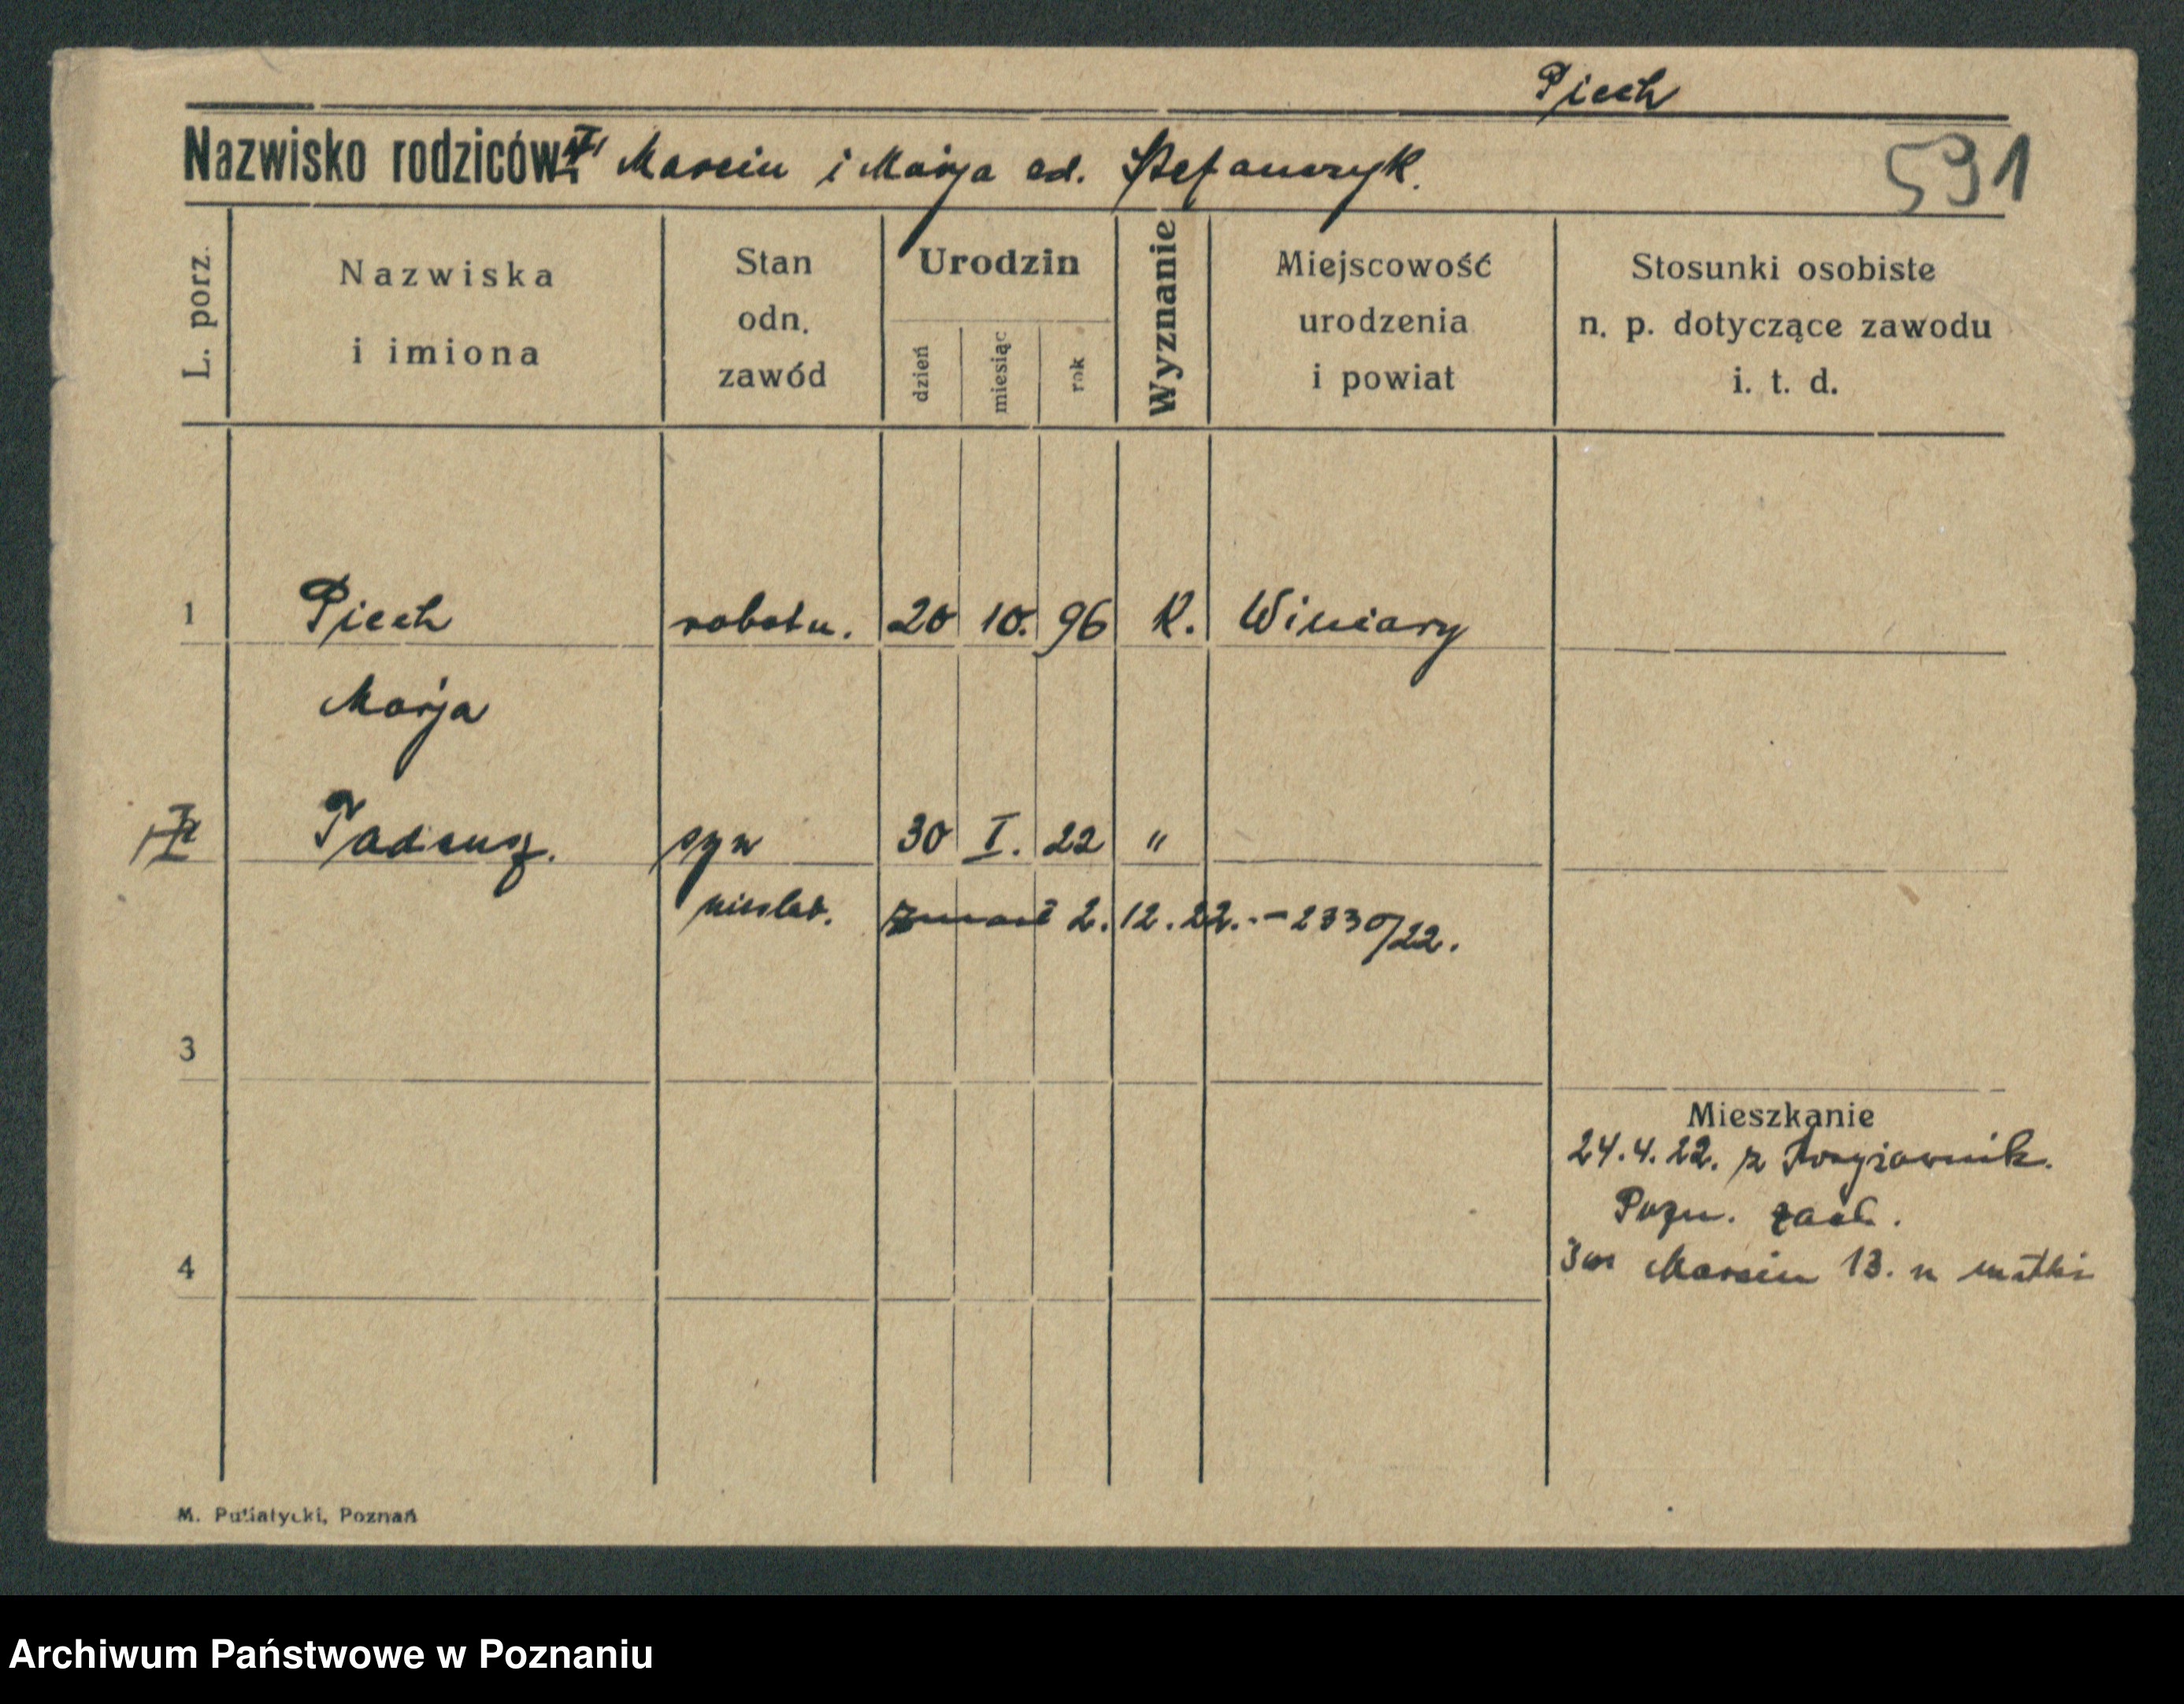 Piech
Nazwisko rodziców: Marcin i Marja od. Stefanczyk.
591
L. porz.
Nazwiska i imiona
Stan odn. zawód
Urodzin
dzień
miesiąc
rok
Wyznanie
Miejscowość urodzenia i powiat
Stosunki osobiste n. p. dotyczące zawodu i. t. d.
1 Piech robotn. 20 10. 96 K. Winiary
Marja
Tadeusz. syn 30 I. 22 "
nieślub. zmarł 2. 12. 22. - 2330/22.
3
Mieszkanie
24.4.22. z
Pozn. zach.
4
Marcin 13. u matki
M. Putiatycki, Poznań
Archiwum Państwowe w Poznaniu